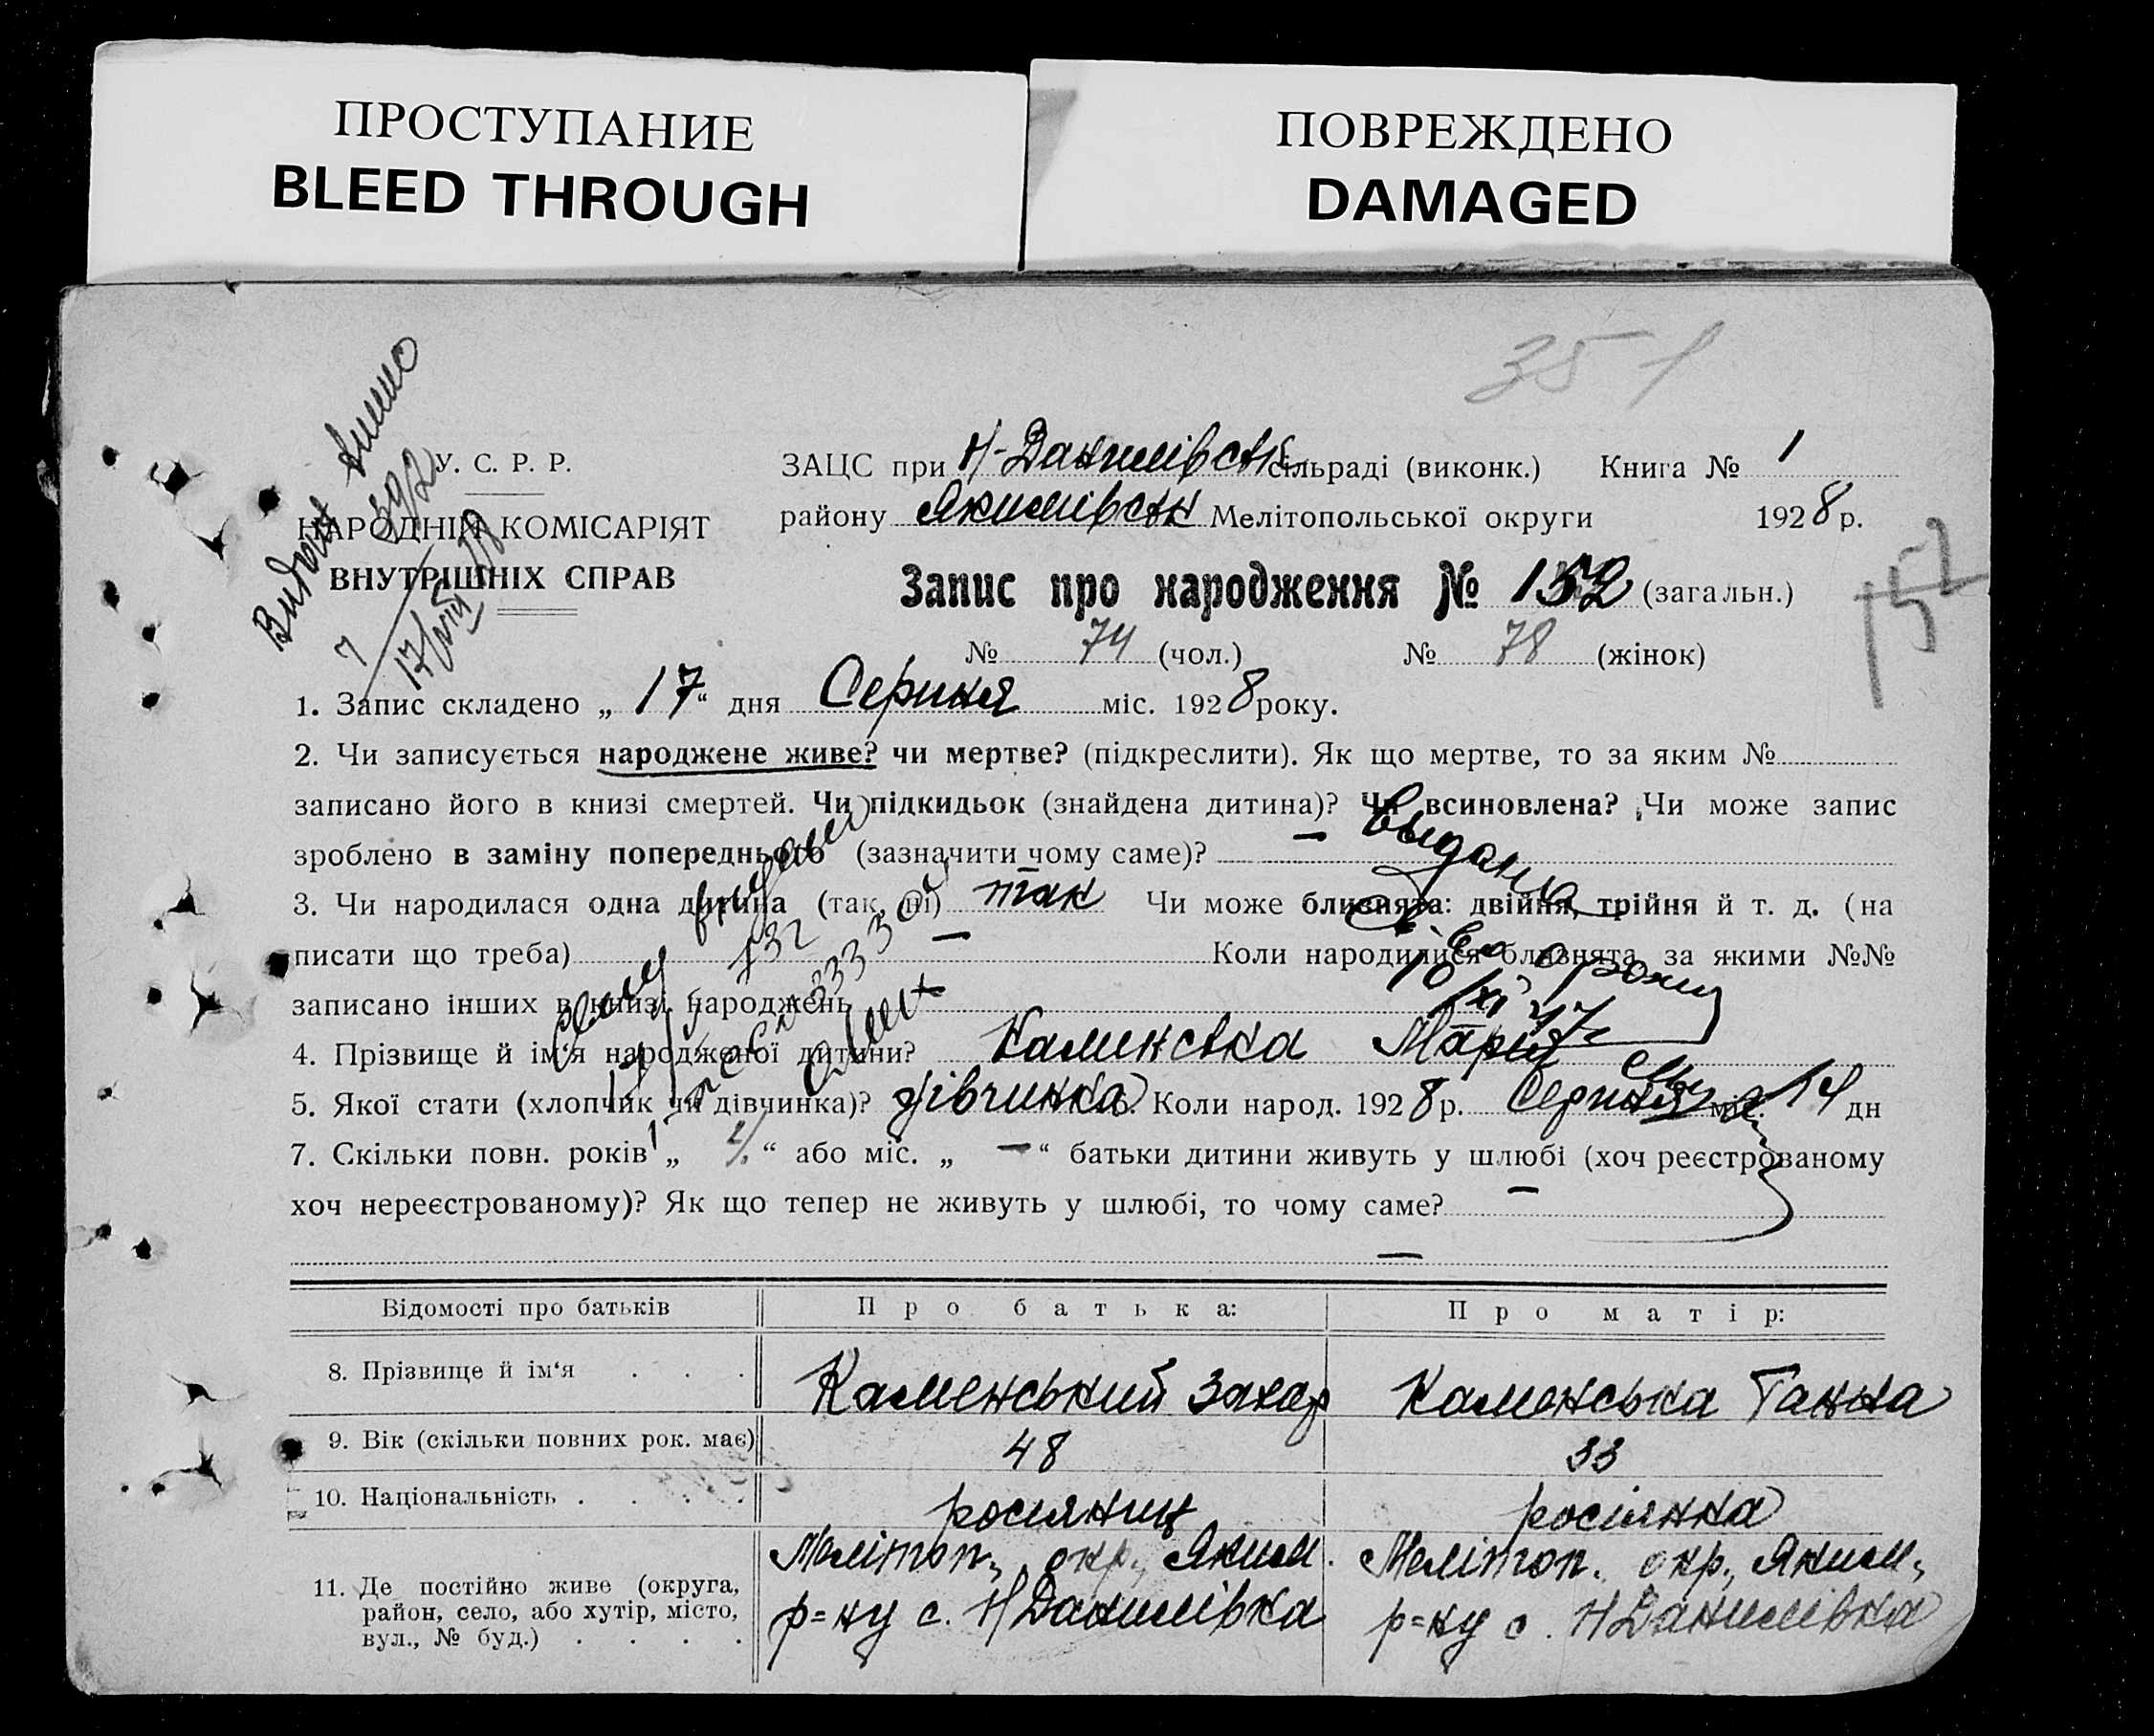 ПРОСТУПАНИЕ
BLEED THROUGH
ПОВРЕЖДЕНО
DAMAGED
351
У. С. Р. Р.
НАРОДНІЙ КОМІСАРІЯТ
ВНУТРІШНІХ СПРАВ
ЗАЦС при Н-Данилівськ сільраді (виконк.) Книга № 1
району Якимівськ Мелітопольської округи 1928 р.
Запис про народження № 152 (загальн.)
152
№ 74 (чол.) № 78 (жінок)
1. Запис складено „ 17 “ дня Серпня міс. 1928 року.
2. Чи записується народжене живе? чи мертве? (підкреслити). Як що мертве, то за яким №
записано його в книзі смертей. Чи підкидьок (знайдена дитина)? Чи всиновлена? Чи може запис
зроблено в заміну попереднього (зазначити чому саме)? —
3. Чи народилася одна дитина (так, ні) так Чи може близнята: двійня, трійня й т. д. (на
писати що треба) — Коли народилися близнята, за якими №№
записано інших в книзі народжень
4. Прізвище й ім‘я народженої дитини? Каменська Марія
5. Якої стати (хлопчик чи дівчинка)? дівчинка 6. Коли народ. 1928 р. Серпня міс. 14 дн
7. Скільки повн. років „ “ або міс. „ — “ батьки дитини живуть у шлюбі (хоч реєстрованому
хоч нереєстрованому)? Як що тепер не живуть у шлюбі, то чому саме? —
—
Відомості про батьків Про батька: Про матір:
8. Прізвище й ім‘я . . . Каменський Захар Каменська Ганна
9. Вік (скільки повних рок. має) 48 33
10. Національність . . . . росіянин росіянка
11. Де постійно живе (округа, Меліт'оп. окр., Яким. Мелітоп. окр., Яким.
район, село, або хутір, місто, р=ну с. Н Данилівка р=ну с. Н Данилівка
вул., № буд.) . . . .